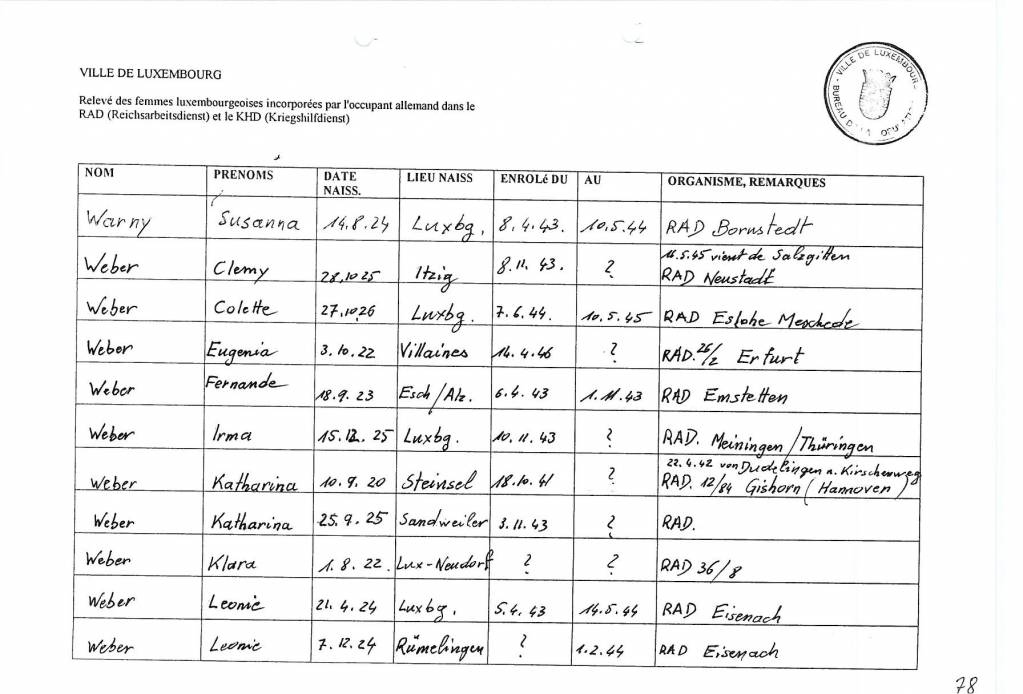 VILLE DE LUXEMBOURG
Relevé des femmes luxembourgeoises incorporées par l'occupant allemand dans le
RAD (Reichsarbeitsdienst) et le KHD (Kriegshilfdienst)
VILLE DE LUXEMBOURG
BUREAU DE LA POPULATION
NOM PRENOMS DATE NAISS. LIEU NAISS ENROLé DU AU ORGANISME, REMARQUES
Warny Susanna 14.8.24 Luxbg. 8.4.43. 10.5.44 RAD Bornstedt
11.5.45 vient de Salzgitten
Weber Clemy 28.10 25 Itzig 8.11.43. ? RAD Neustadt
Weber Colette 27.10.26 Luxbg. 7.6.44. 10.5.45 RAD Eslohe Meschede
Weber Eugenia 3.10.22 Villaines 14.4.46 ? RAD. 26/2 Erfurt
Weber Fernande 18.9.23 Esch/Alz. 6.4.43 1.11.43 RAD Emstetten
Weber Irma 15.12.25 Luxbg. 10.11.43 ? RAD. Meiningen/Thüringen
22.4.42 von Dudelingen n. Kirschenweg
Weber Katharina 10.9.20 Steinsel 18.10.41 ? RAD. 12/84 Gishorn (Hannover)
Weber Katharina 25.9.25 Sandweiler 3.11.43 ? RAD.
Weber Klara 1.8.22. Lux-Neudorf ? ? RAD 36/8
Weber Leonie 21.4.24 Luxbg. 5.4.43 14.5.44 RAD Eisenach
Weber Leonie 7.12.24 Rümelingen ? 1.2.44 RAD Eisenach
78